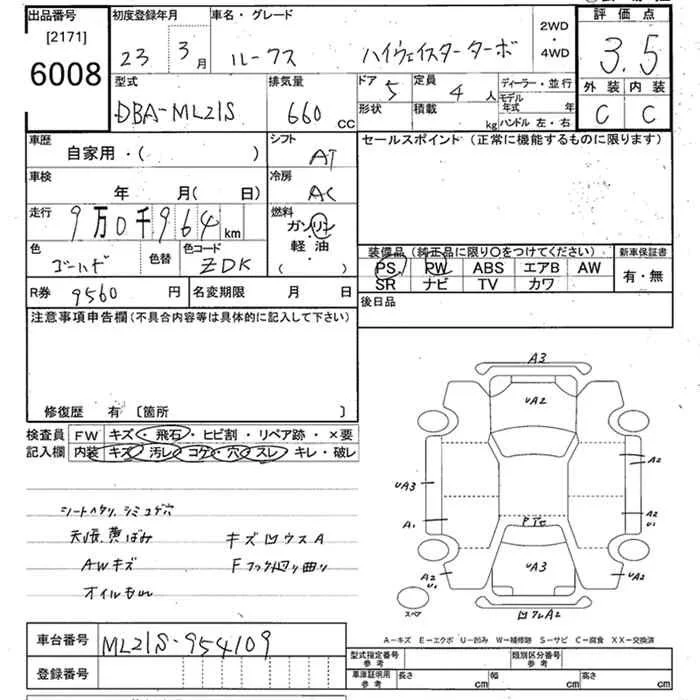 出品番号
[2171]
6008
初度登録年月
23 3月
車名・グレード
ルークス ハイウェイスターターボ
2WD
・
4WD
評価点
3.5
外装 内装
C C
型式
DBA-ML21S
排気量
660 CC
ドア 5
形状
定員 4 人
積載 kg
ディーラー・並行
モデル年式 年
ハンドル 左・右
車歴
自家用・( )
シフト
AT
車検
年 月( 日)
冷房
AC
走行
9万0千964 km
燃料
ガソリン
・
軽油
( )
色
ゴールド
色替
色コード
ZDK
R券 9560 円
名変期限 月 日
セールスポイント (正常に機能するものに限ります)
装備品 (純正品に限り○をつけてください)
PS PW ABS エアB AW
SR ナビ TV カワ
新車保証書
有・無
後日品
注意事項申告欄(不具合内容等は具体的に記入して下さい)
修復歴 有 〔箇所 〕
検査員
記入欄
FW キズ・飛石・ヒビ割・リペア跡・×要
内装 キズ・汚レ・コゲ・穴・スレ・キレ・破レ
シートヘタリ、シミコゲ穴
天張、黄ばみ
AWキズ
キズ凹ウスA
A3
UA2
UA3
A1
A2
A2
U1
PTC
UA3
A2
U1
UA2
スペア
A2
A－キズ E－エクボ U－凹み W－補修跡 S－サビ C－腐食 XX－交換済
車台番号 ML21S-954109
登録番号
型式指定番号
参考
類別区分番号
参考
車庫証明用
参考
長さ cm 幅 cm 高さ cm